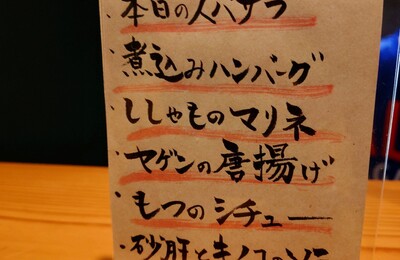 ・本日のスパサラ
・煮込みハンバーグ
・ししゃものマリネ
・ヤゲンの唐揚げ
・もつのシチュー
・砂肝とキノコの